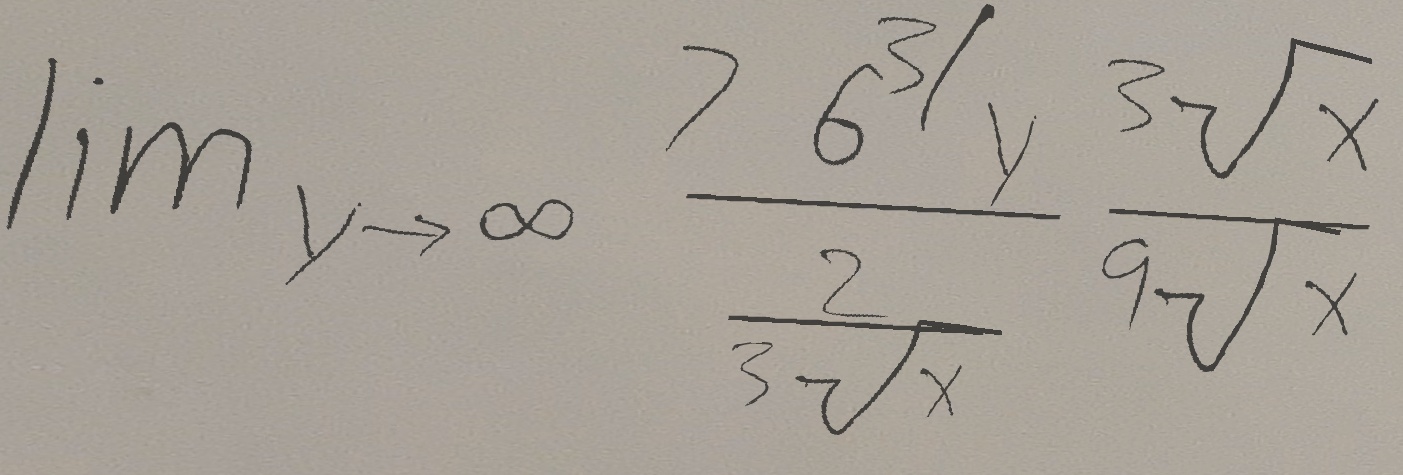 lim y→∞ 7 6^3/y / (2 / 3√x) 3√x / 9√x